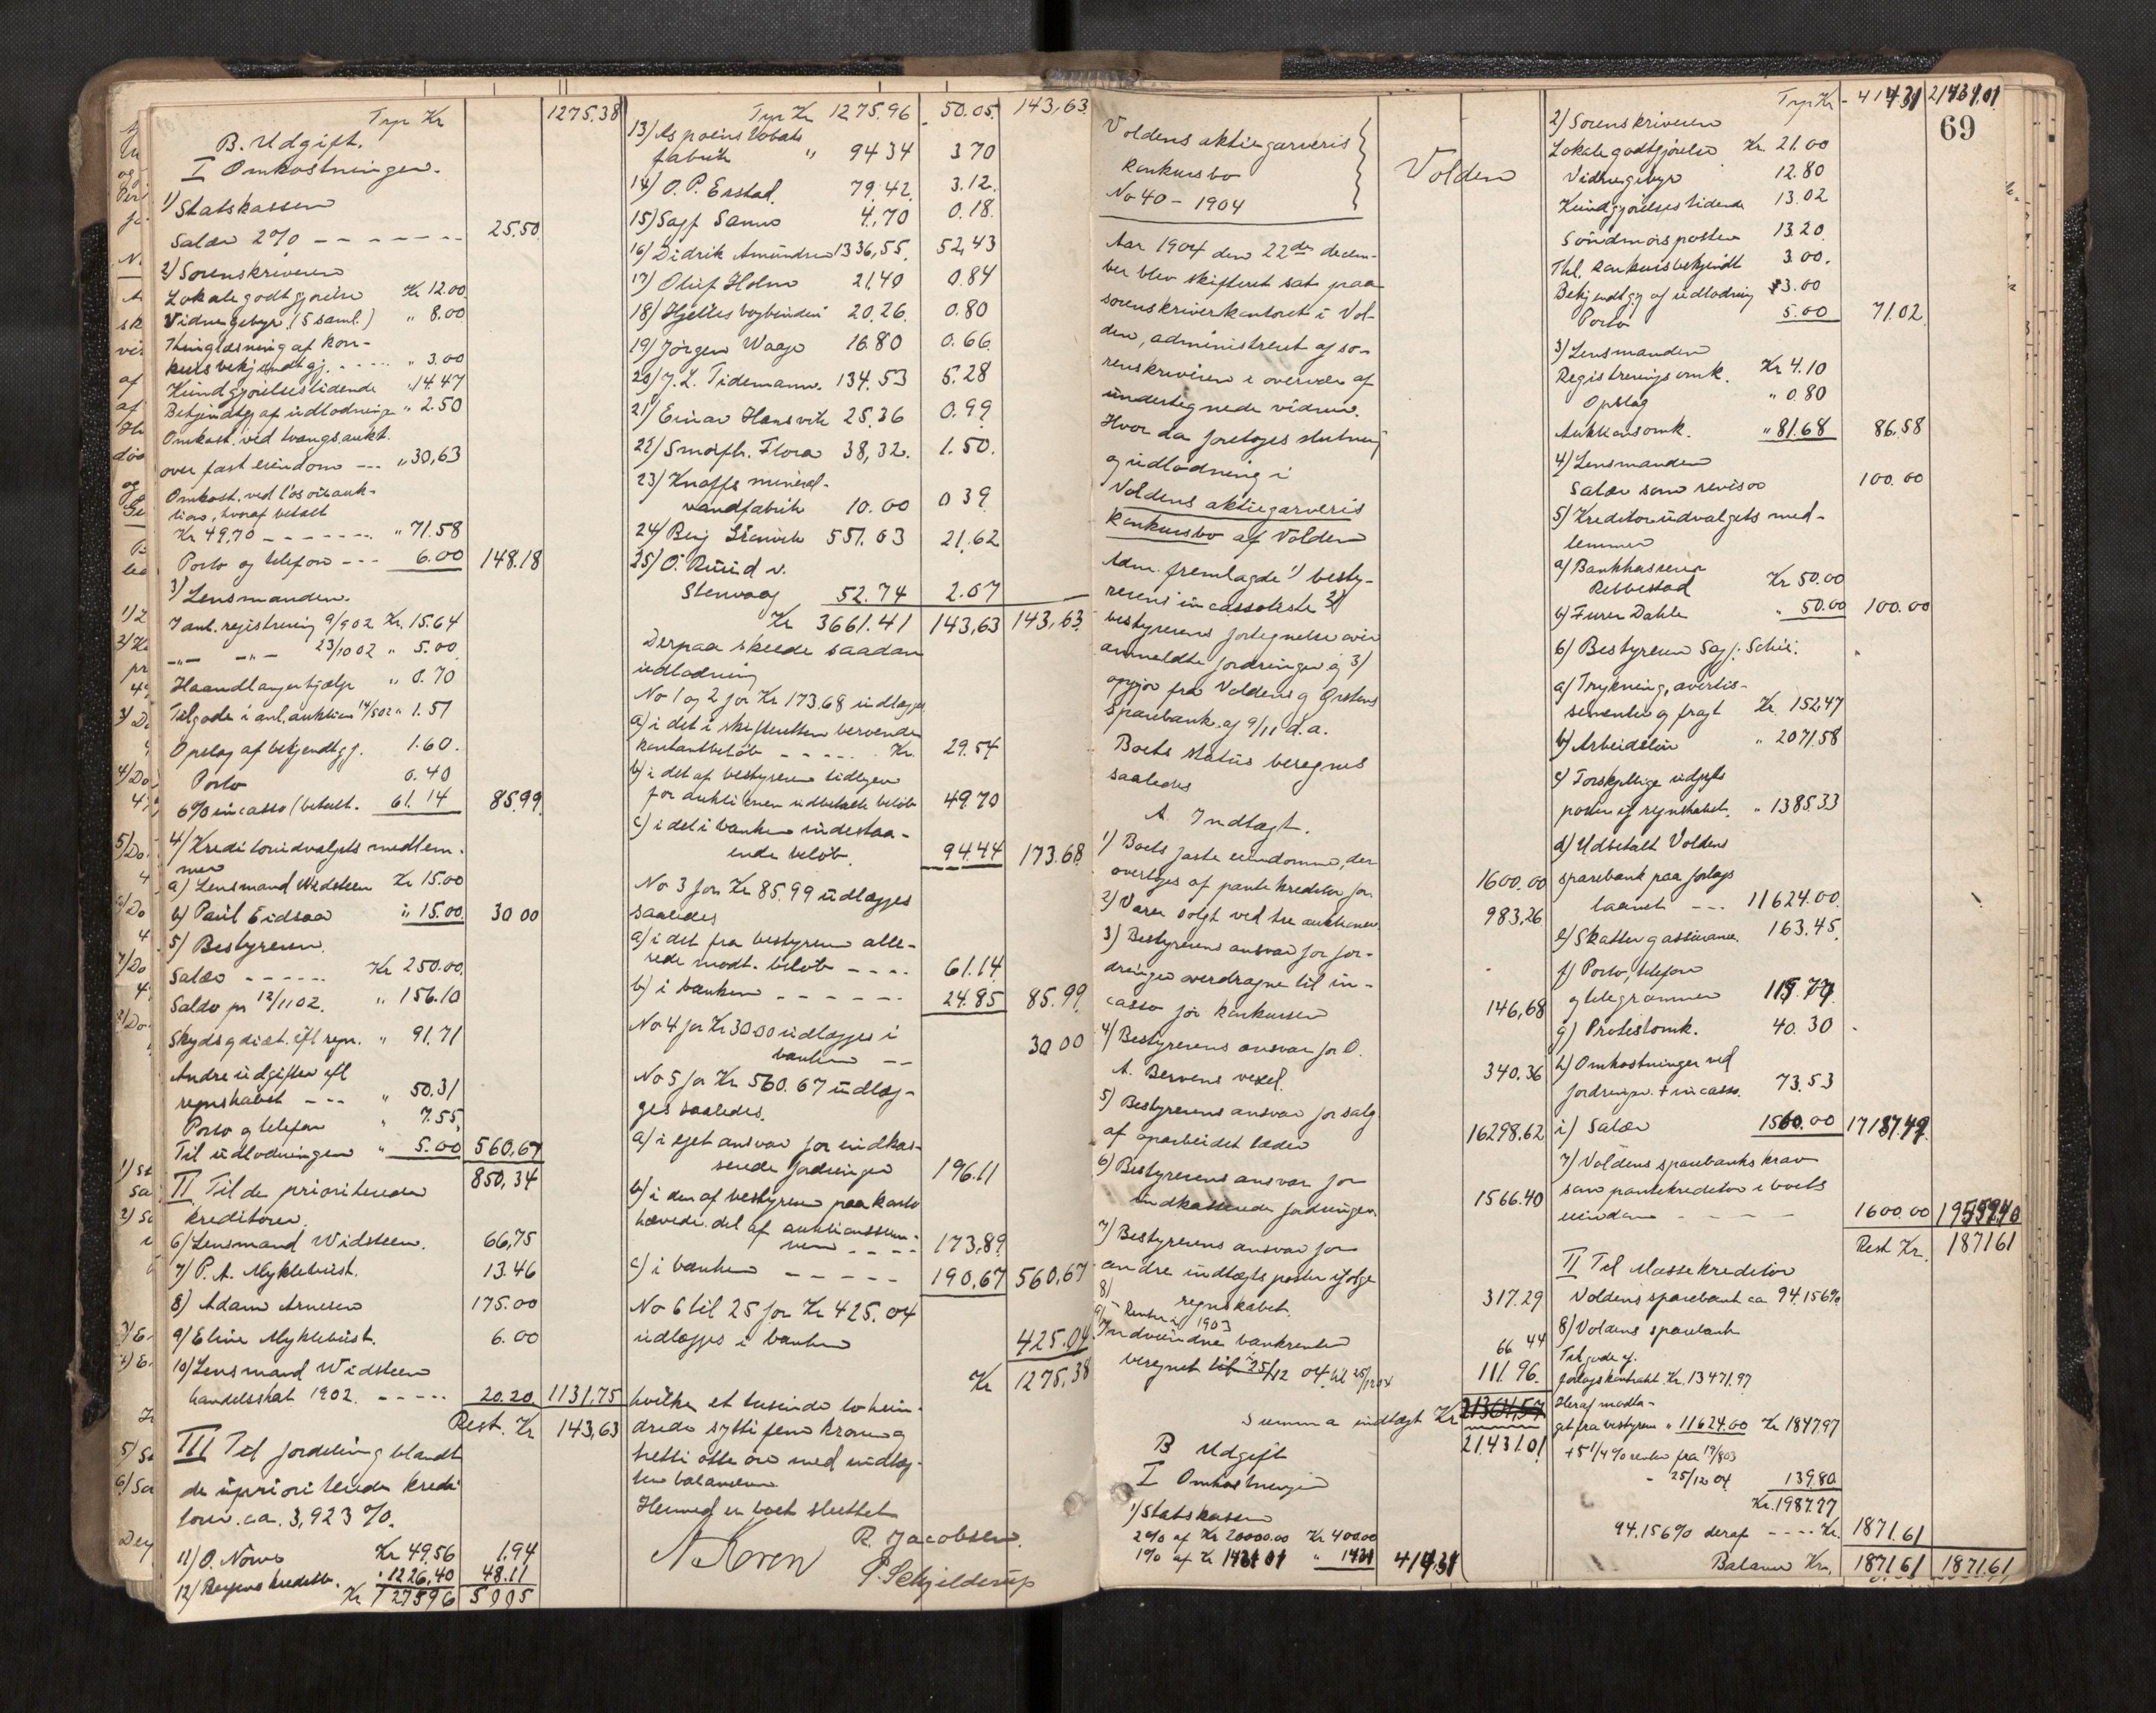 Trp Kr 1275.38
B. Udgift.
I Omkostninger.
1) Statskassen
Salær 2% - - - - - - - 25.50
2) Sorenskriveren
Lokalegodtgjørelse Kr 12.00
Vidnegebyr (5 saml.) " 8.00
Thinglæsning af kon-
kursbekjendtgj. - - - - " 3.00
Kundgjørelsestidende " 14.47
Bekjendtgj. af udlodninge " 2.50
Omkost. ved tvangsaukt.
over fast eiendom --- " 30,63
Omkost. ved løsøreauk-
tion, hvoraf betalt
Kr 49,70 - - - - - - - " 71.58
Porto og telefon --- 6.00 148.18
3) Lensmanden.
I anl. registrering 9/9 02 Kr. 15.64
-"- -"- 23/10 02 " 5.00
Haandlangerhjælp " 0.70
Tilgode i anl. auktion 14/5 02 " 1.51
Opslag af bekjendtgj. 1.60.
Porto 0.40
6% incasso (betalt. 61.14 85.99
4) Kreditorudvalgets medlem-
mer
a) Lensmand Widsteen Kr 15.00
b) Paul Eidsaa " 15.00 30 00
5) Bestyreren.
Salær - - - - - Kr 250.00.
Saldo pr 12/11 02. " 156.10
Skyds g diæt. ifl regn. " 91.71
Andre udgifter ifl
regnskabet --- " 50.31
Porto g telefon " 7.55
Til udlodningen " 5.00 560,67
850,34
II Til de prioriterede
kreditorer.
6) Lensmand Widsteen. 66,75
7) P. A. Myklebust. 13.46
8) Adam Arnesen 175.00
9) Eline Myklebust. 6.00
10) Lensmand Widsteen
handelsskat 1902. - - - - - 20.20 1131,75
Rest. Kr 143,63
III Til fordeling blandt
de uprioriterede kredi
torer. ca. 3,923 %.
11) O. Nørve Kr 49.56 1.94
12) Bergens kreditb. " 1226,40 48.11
Kr 1275 96 50 05
Trp Kr 1275.96 50.05 143,63
13) Aspøens tobaks
fabrik " 94 34 3 70
14) O. P. Enstad. 79.42. 3.12.
15) Sagf Sanne 4.70 0.18.
16) Didrik Amundsen 1336,55. 52,43
17) Oluf Holm 21,40 0.84
18) Hjelles bogbinderi 20.26. 0.80
19) Jørgen Waage 16.80 0.66.
20) J. L. Tidemann. 134.53 5.28
21) Einar Hansvik 25.36 0.99
22) Smørfb. Flora 38,32. 1.50.
23) Knoffs mineral-
vandfabrik 10.00 0 39
24) Berj Stenvik 551.63 21.62
25) O. Ruud v.
Stenvaag 52.74 2.07
Kr 3661.41 143,63 143,63
Derpaa skeede saadan
udlodning
No 1 og 2 for Kr 173.68 udlægges
a) i det i skifteretten beroende
kontantbeløb - - - - - Kr. 29.54
b) i det af bestyreren tidligere
for auktionen udbetalte beløb 49.70
c) i det i banken indestaa-
ende beløb. 94.44 173.68
No 3 for Kr 85.99 udlægges
saaledes
a) i det fra bestyreren alle-
rede modt. beløb - - - - 61.14
b) i banken - - - - - - 24.85 85.99
No 4 for Kr 30 00 udlægges i
banken -- 30 00
No 5 for Kr 560.67 udlæg-
ges saaledes.
a) i eget ansvar for indkas-
serede fordringer 196.11
b) i den af bestyreren paa konto
hævede del af auktionssum-
men - - - - 173,89
c) i banken - - - - - 190,67 560,67
No 6 til 25 for Kr 425.04
udlægges i banken 425.04
Kr 1275,38
hvilke et tusinde tohun-
drede sytti fem kroner g
tretti otte øre med indtæg-
ten balancerer
Hermed er boet sluttet
R. Jacobsen.
N Koren
P. Schjelderup
69
Voldens aktiegarveris
konkursbo Volden
No 40 - 1904
Aar 1904 den 22de decem-
ber blev skifteret sat paa
sorenskriverkontoret i Vol-
den, administreret af so-
renskriveren i overvær af
undertegnede vidner.
Hvor da foretoges slutning
og udlodning i
Voldens aktiegarveris
konkursbo af Volden
Adm. fremlagde 1) besty-
rerens incassoliste 2)
bestyrerens fortegnelse over
anmeldte fordringer g 3)
opgjør fra Voldens g Ørstens
sparebank af 9/11 d. a.
Boets status beregnes
saaledes
A. Indtægt.
1) Boets faste eiendomme, der
overtoges af pantekreditor for 1600.00
2) Varer solgt ved tre auktioner 983,26
3) Bestyrerens ansvar for for-
dringer overdragne til in-
casso før konkursen 146,68
4) Bestyrerens ansvar for O.
A. Bervens vexel. 340.36
5) Bestyrerens ansvar for salg
af oparbeidet læder 16298.62
6) Bestyrerens ansvar for
indkasserede fordringer. 1566.40
7) Bestyrerens ansvar for
andre indtægtsposter ifølge
regnskabet. 317.29
8) Renter i 1903 66 44
9) Indvundne bankrenter
beregnet til 25/12 04 til 25/12 04 111 96.
Summa indtægt Kr 21364,57
21431.01
B Udgift
I Omkostninger
1) Statskassen
2% af Kr 20000.00 Kr 400.00
1% af Kr 1431 01 " 14 31 414.31
Trp Kr - 414.31 21431.01
2) Sorenskriveren
Lokalegodtgjørelse Kr. 21.00
Vidnegebyr 12.80
Kundgjørelsestidende 13.02
Søndmørsposten 13.20
Thl. konkursbekjendt 3.00.
Bekjendtgj af udlodning 3.00
Porto 5.00 71.02
3) Lensmanden
Registreringsomk. Kr 4.10
Opslag " 0.80
Auktionsomk. " 81.68 86,58
4) Lensmanden
Salær som revisor 100.00
5) Kreditorudvalgets med-
lemmer
a) Bankkasserer
Rebbestad Kr 50.00
b) Furer Dahle " 50.00 100.00
6) Bestyreren Sagf. Schei.
a) Trykning, avertis-
sementer g fragt Kr. 152.47
b) Arbeidsløn " 2071.58
c) Forskjellige udgifts
poster ifl regnskabet. " 1385.33
d) Udbetalt Voldens
sparebank paa forlags
laanet --- 11624.00
e) Skatter g assurance. 163.45
f) Porto, telefon
g telegrammer
g) Protistomk. 40.30
h) Omkostninger ved
fordringer + incasso. 73.53
i) Salær 1560.00
7) Voldens sparebanks krav
som pantekreditor i boets
eiendom - - - - 1600.00 19559.40
Rest Kr. 1871 61
II Til Massekreditor
Voldens sparebank ca 94.156%
8) Voldens sparebank
Tilgode ifl.
forlagskontrakt Kr. 13471.97
Heraf modta-
get fra bestyreren " 11624.00 Kr 1847.97
+ 5 1/4 % renter fra 17/8 03
- 25/12 04 139.80
Kr. 1987.77
94.156% deraf - - - - Kr. 1871.61
Balance Kr. 1871 61 1871.61